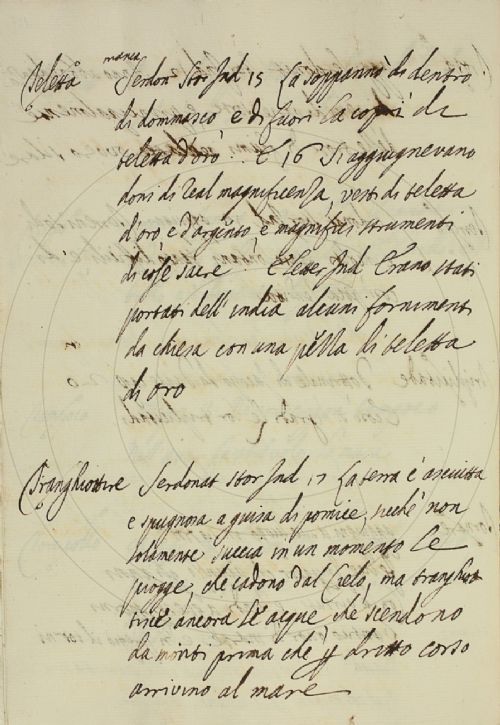 manca
Teletta Serdon Stor Ind 15 La soppannò di dentro
di dommasco e di fuori la coprì di
teletta d'oro. E 16 Si aggiugnevano
doni di real magnificenza, vesti di teletta
d'oro e d'argento, e magnifici strumenti
di cose sacre. E Letter Ind Erano stati
portati dell'india alcuni fornimenti
da chiesa con una pezza di teletta
di oro
Tranghiottire Serdonat Stor Ind 17 La terra è asciutta
e spugnosa a guisa di pomice, sicchè non
solamente succia in un momento le
piogge, che cadono dal Cielo, ma tranghiot
tisce ancora le acque che scendono
da monti prima che p dritto corso
arrivino al mare